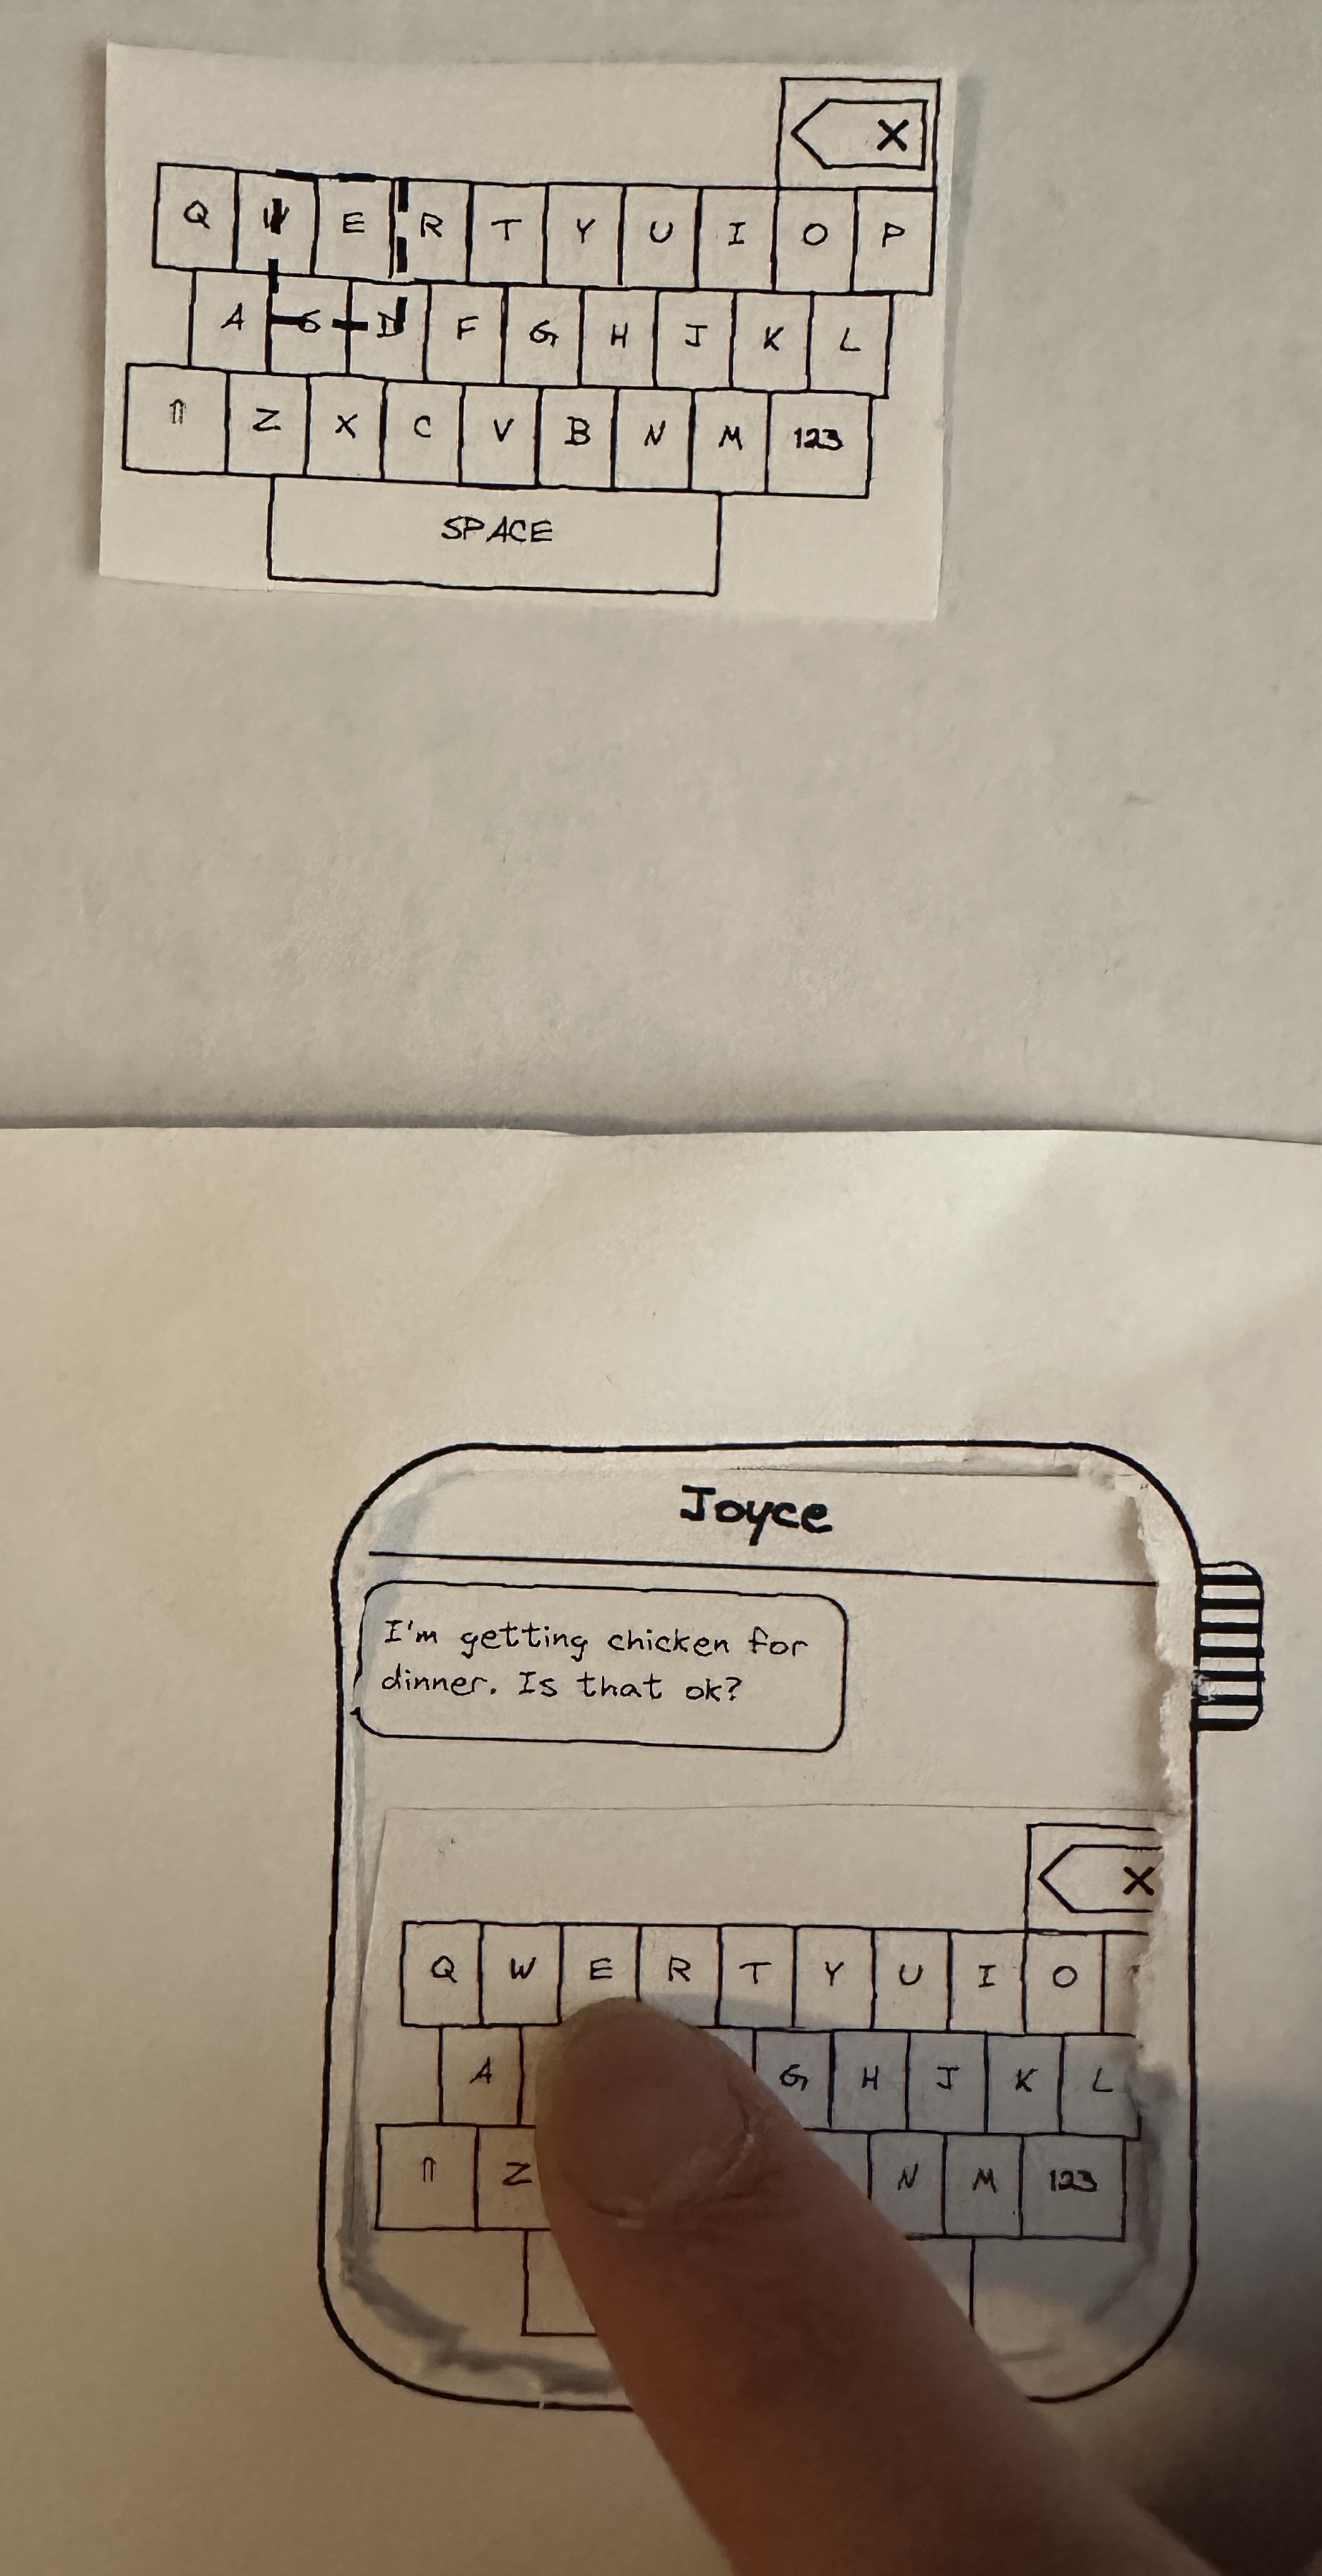 X
Q W E R T Y U I O P
A S D F G H J K L
⇑ Z X C V B N M 123
SPACE
Joyce
I'm getting chicken for
dinner. Is that ok?
X
Q W E R T Y U I O
A G H J K L
⇑ Z N M 123